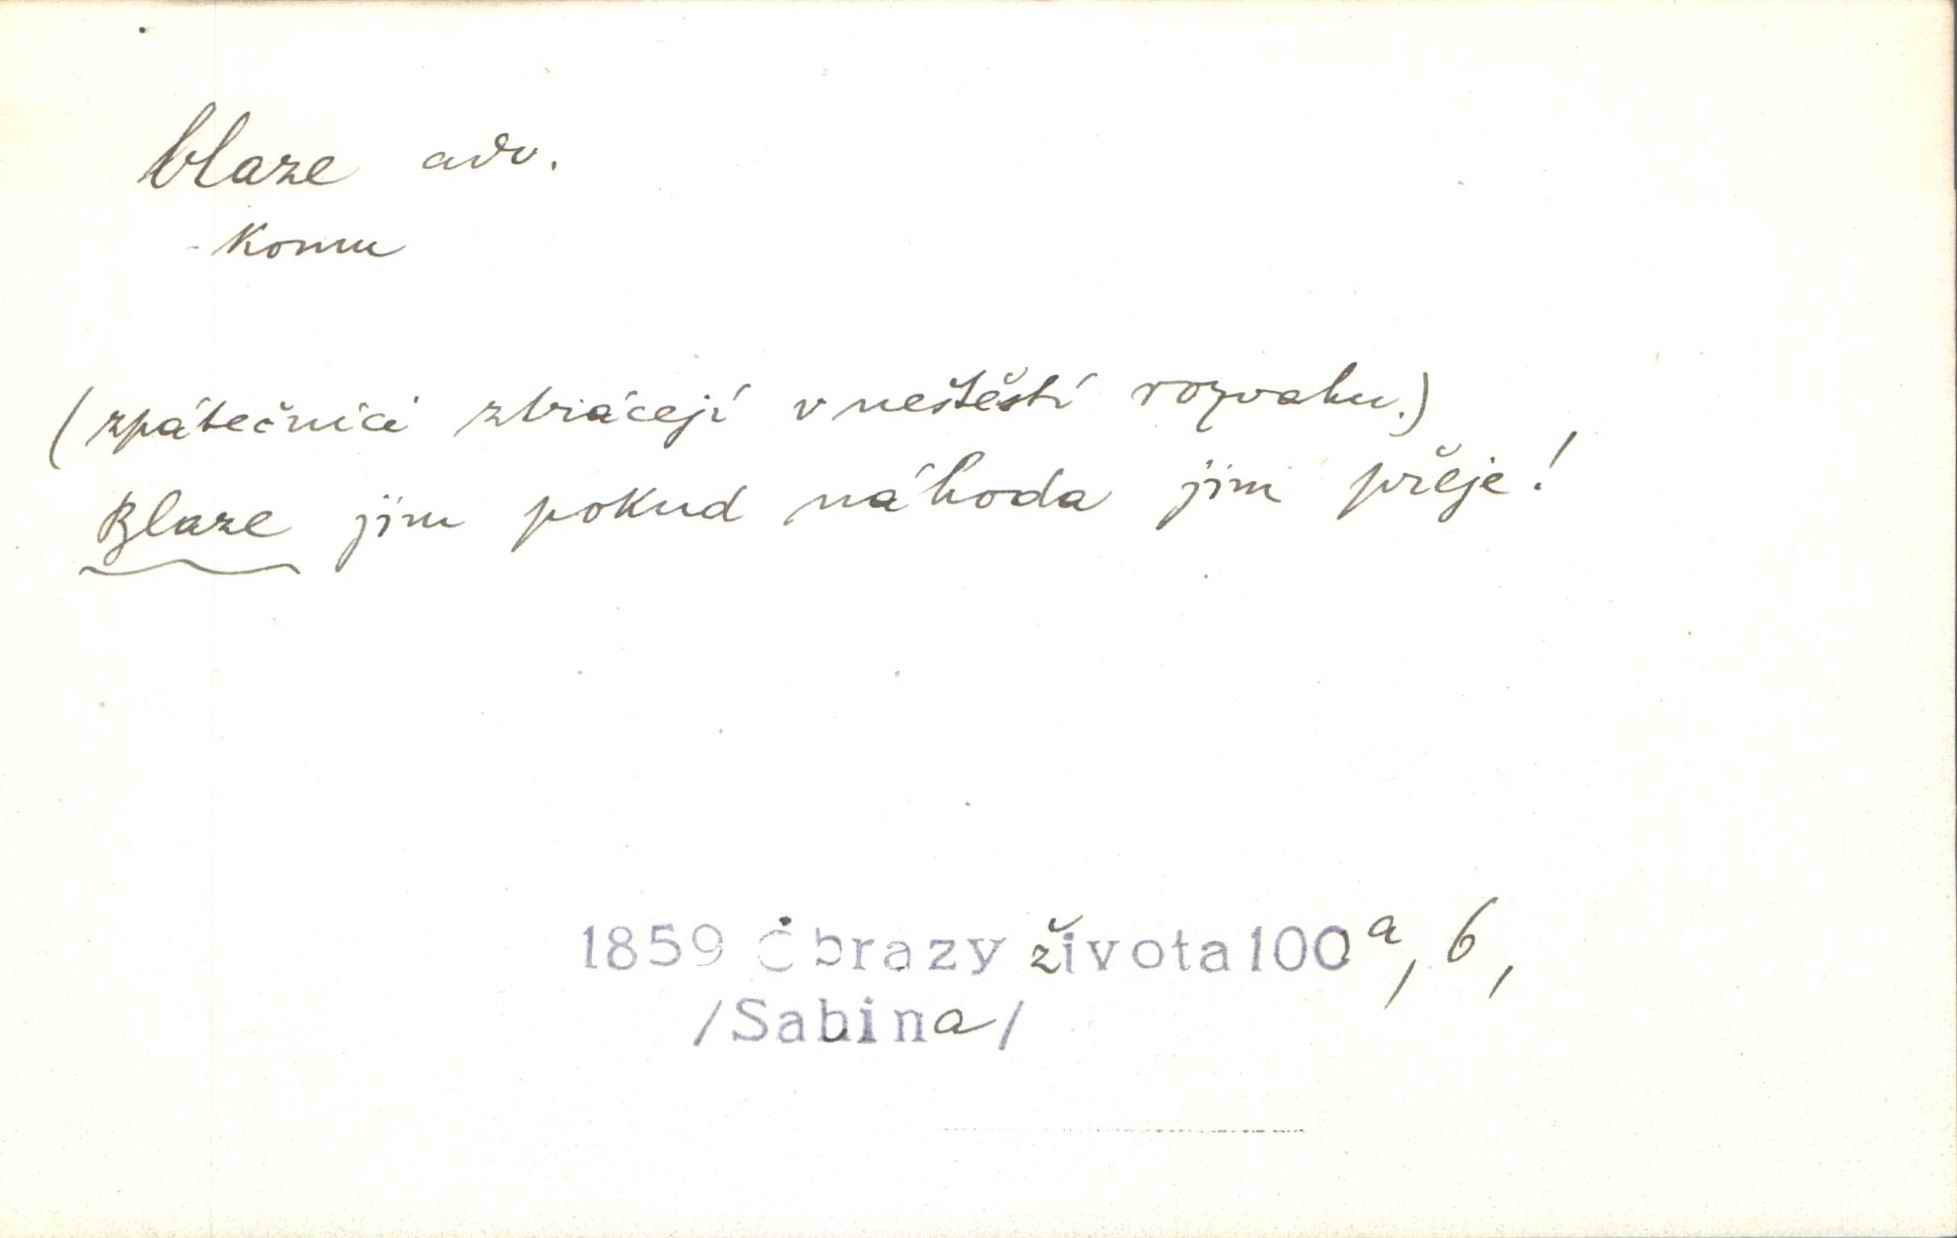 blaze adv.
- komu
(zpátečníci ztrácejí v neštěstí rozvahu.)
Blaze jim pokud náhoda jim přeje!
1859 Obrazy života 100a, 6,
/Sabina/